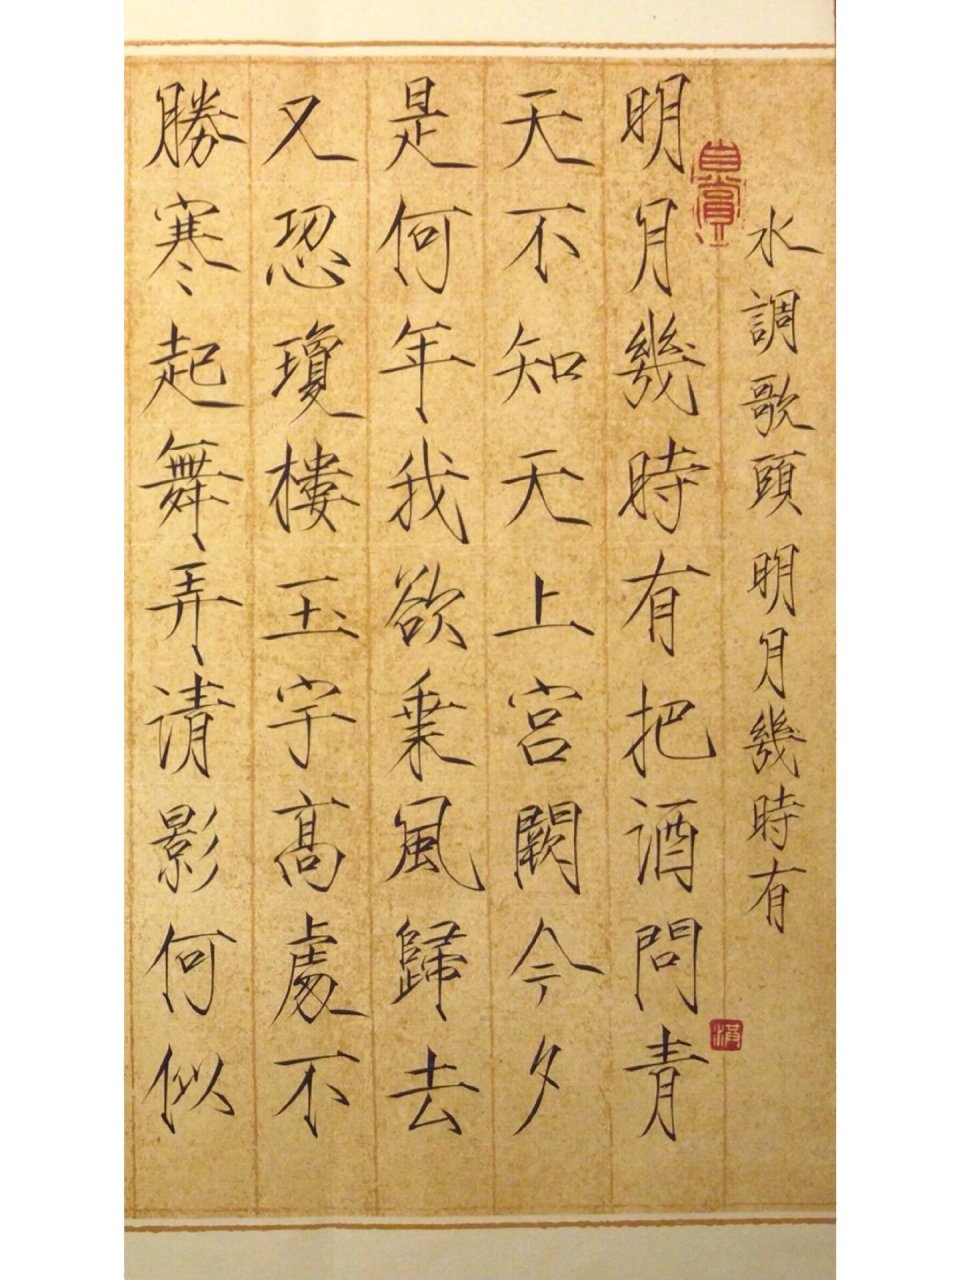 水調歌頭 明月幾時有
明月幾時有把酒問青
天不知天上宮闕今夕
是何年我欲乘風歸去
又恐瓊樓玉宇高處不
勝寒起舞弄清影何似